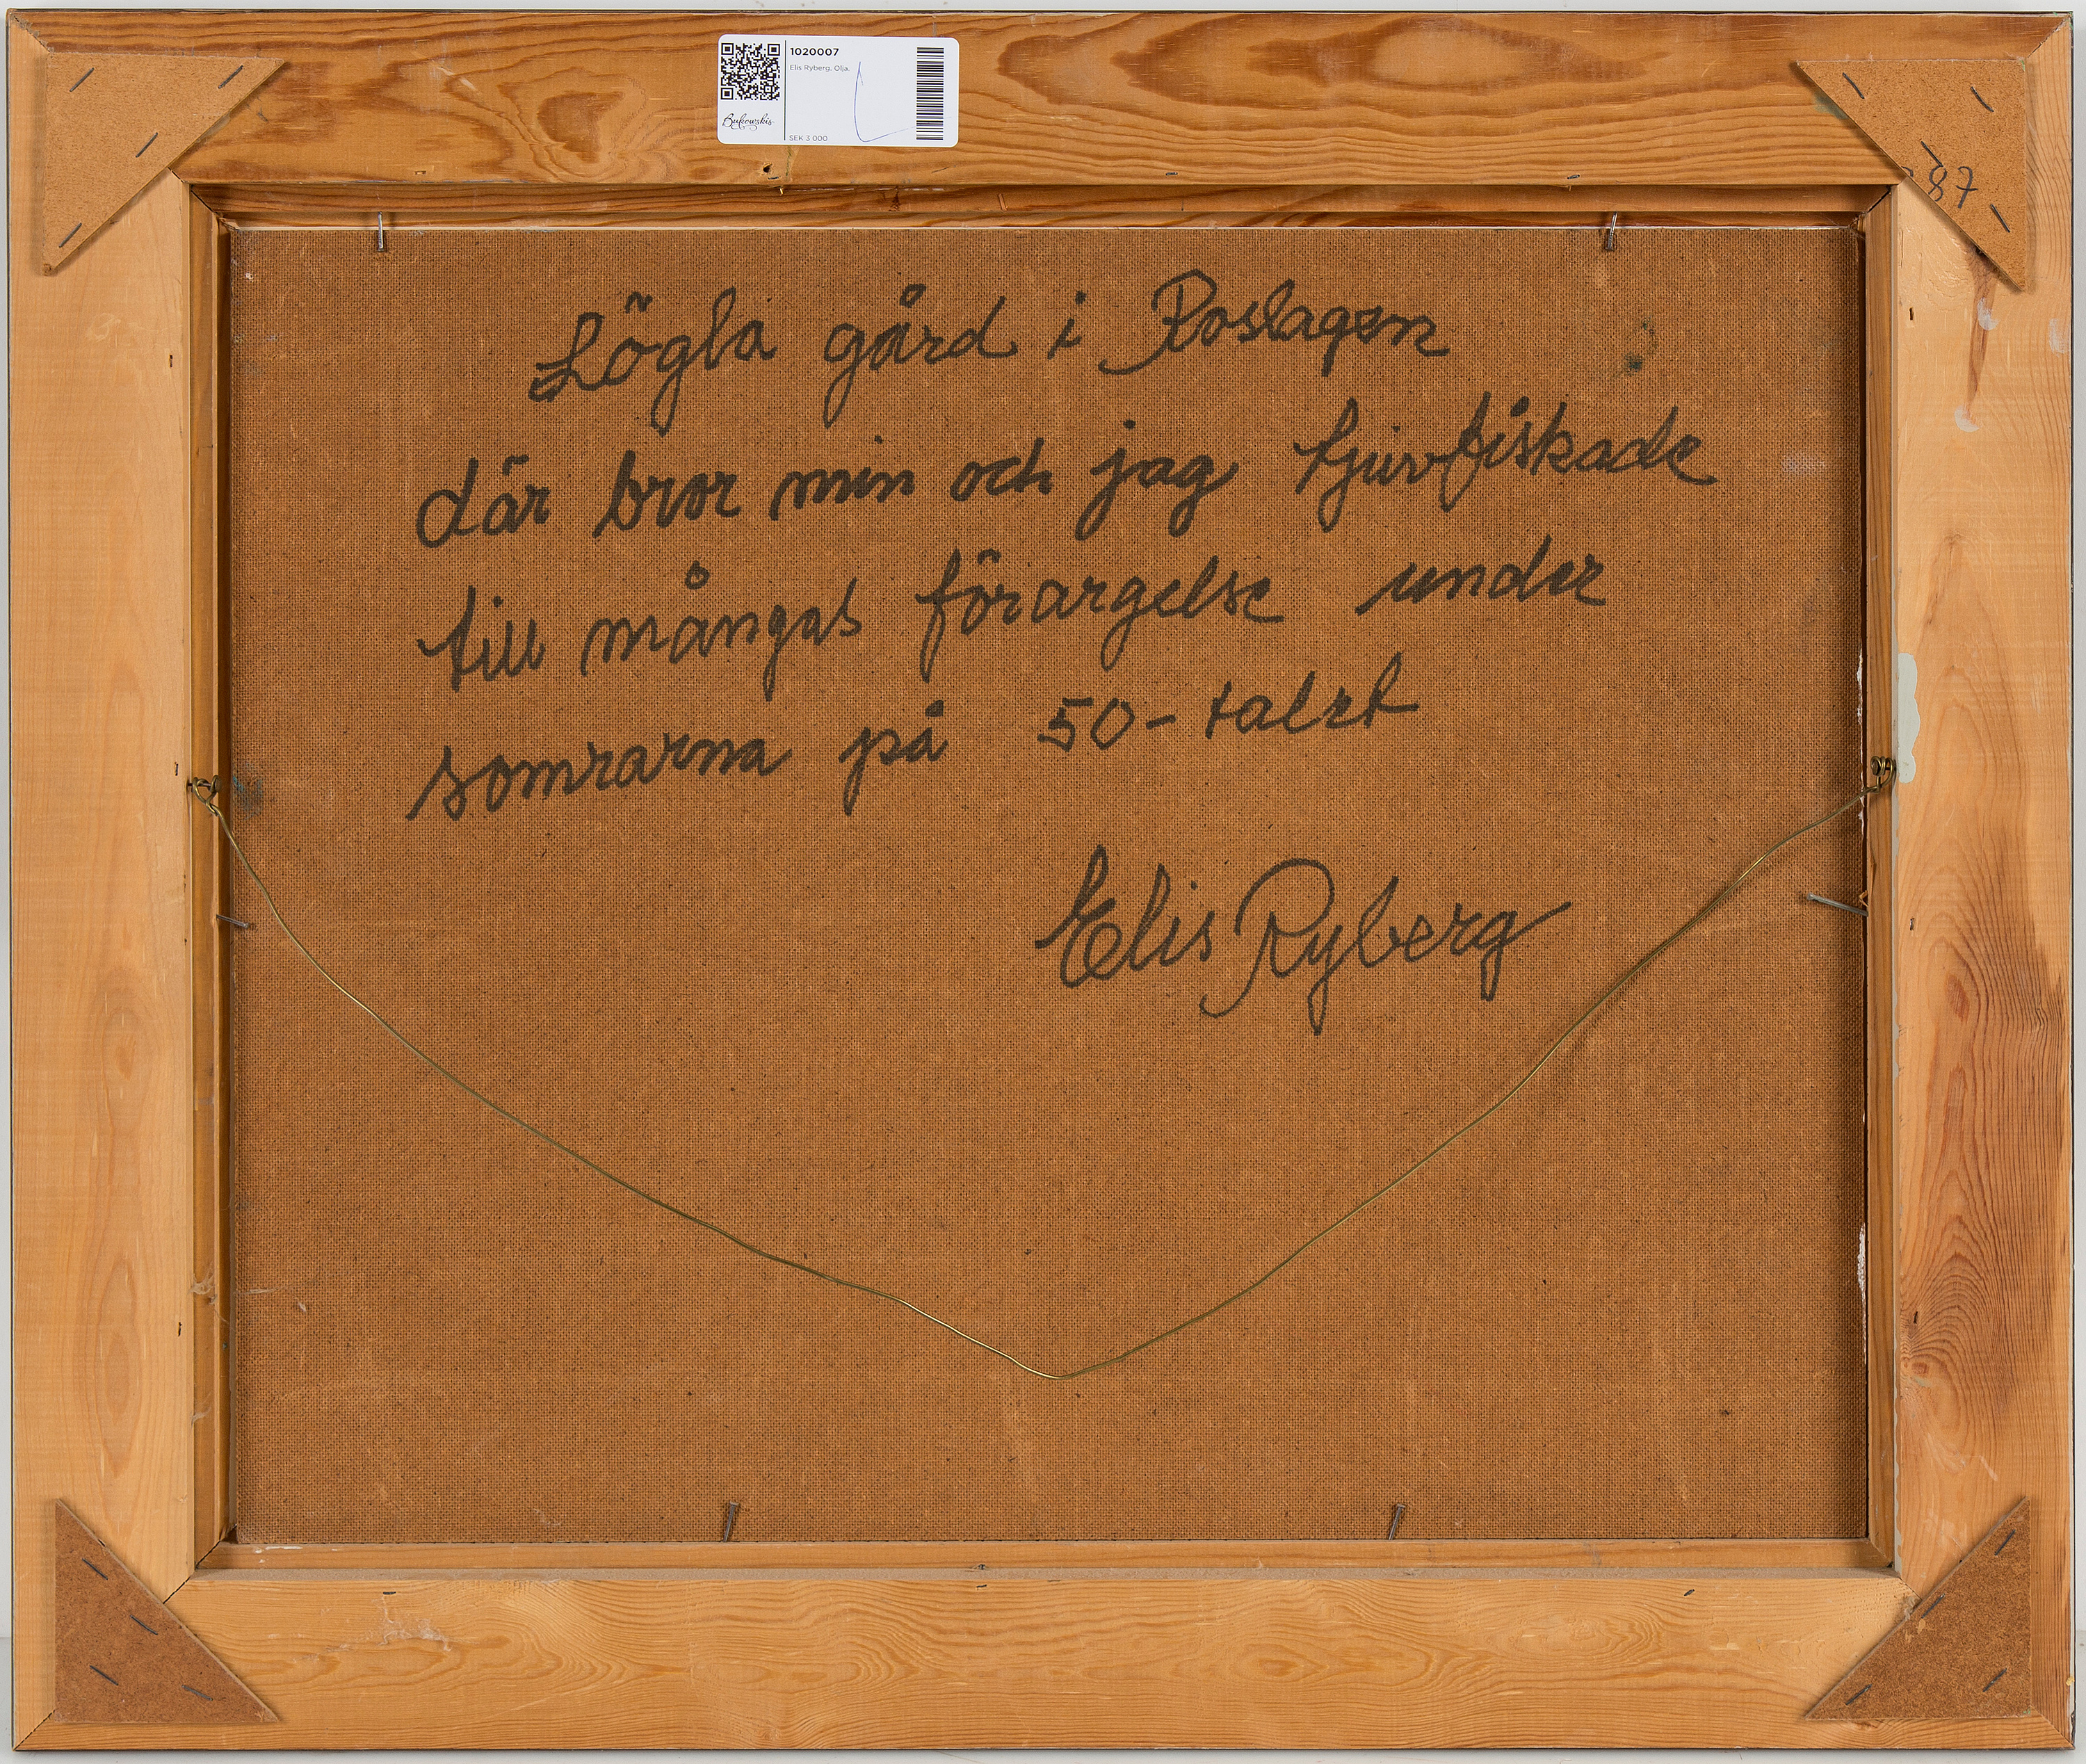 1020007
Elis Ryberg. Olja.
Bukowskis
SEK 3 000
87
Lögla gård i Roslagen
där bror min och jag tjuvfiskade
till mångas förargelse under
somrarna på 50-talet
Elis Ryberg